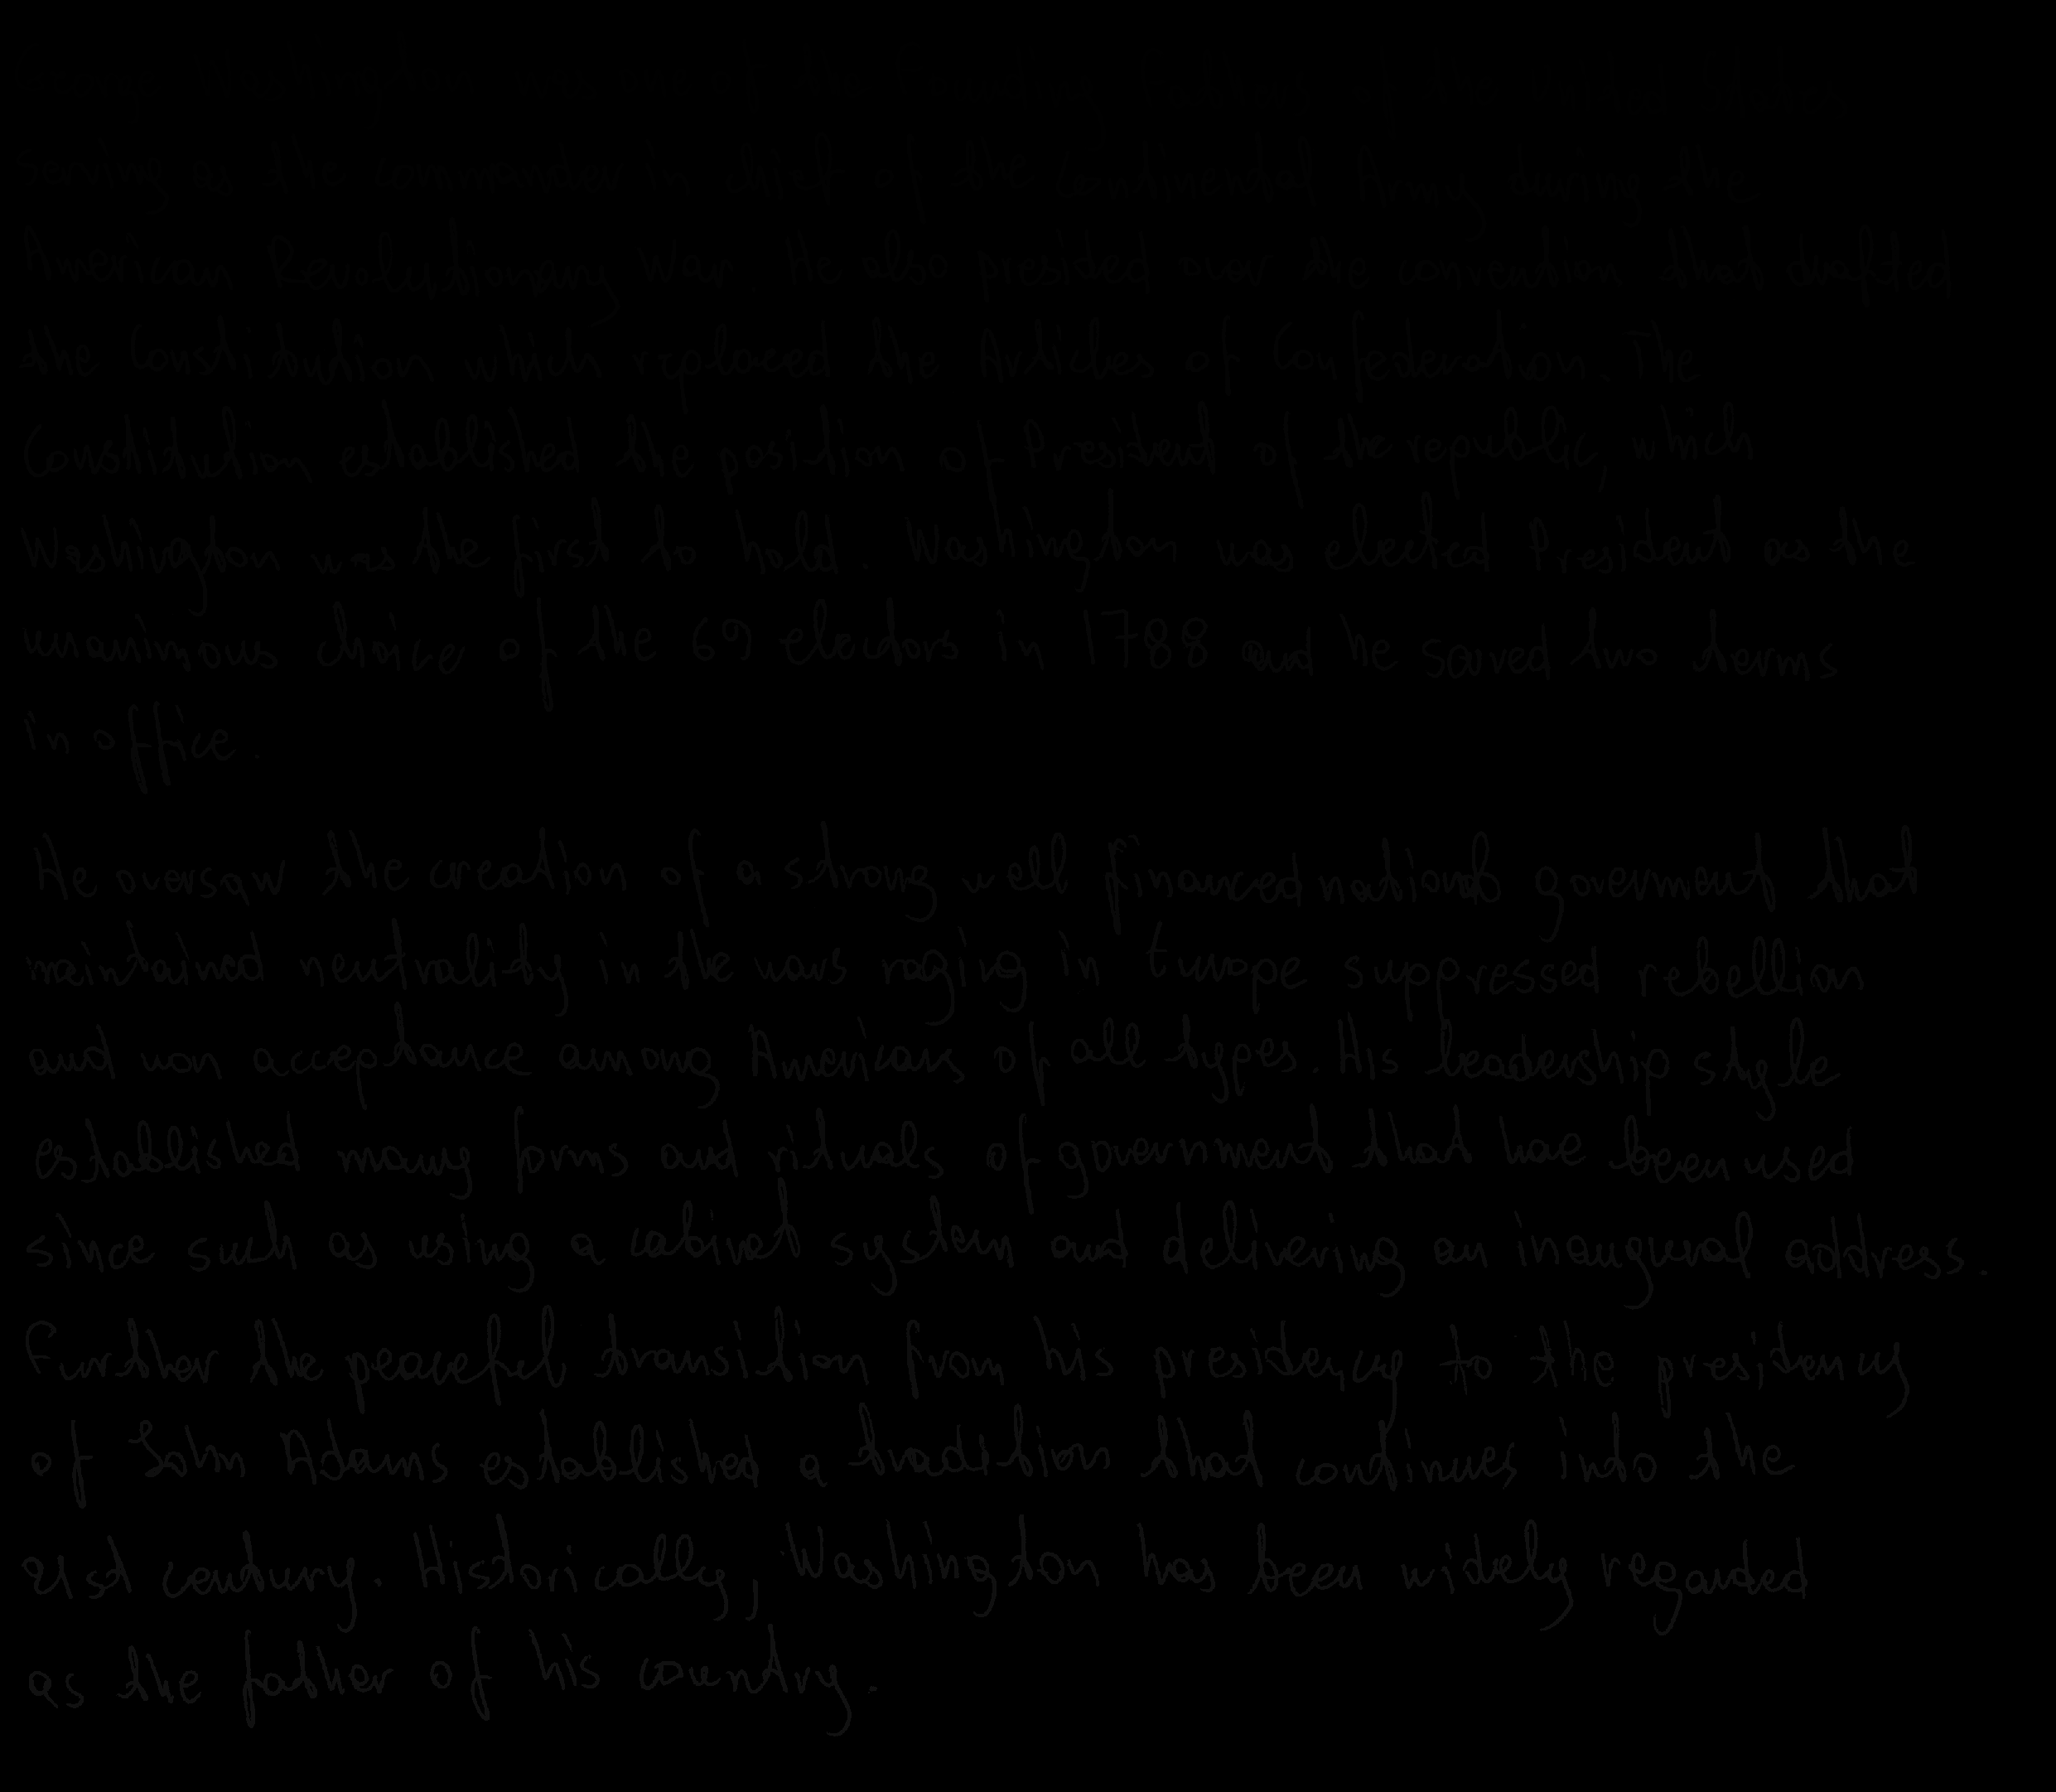 serving as the commander in chief of the Continental Army during the
American Revolutionary War. He also presided over the convention that drafted
the Constitution which replaced the Articles of Confederation. The
Constitution established the position of President of the republic, which
Washington was the first to hold. Washington was elected President as the
unanimous choice of the 69 electors in 1788 and he served two terms
in office.
He oversaw the creation of a strong well financed national goverment that
maintained neutrality in the wars raging in Europe suppressed rebellion
and won acceptance among Americans of all types. His leadership style
established many forms and rituals of government that hae been used
since such as using a cabinet system and delivering an inaugural address.
Further the peaceful transition from his presidency to the presidency
of John Adams established a tradition that continues into the
21st century. Historically, Washington has been widely regarded
as the father of his country.